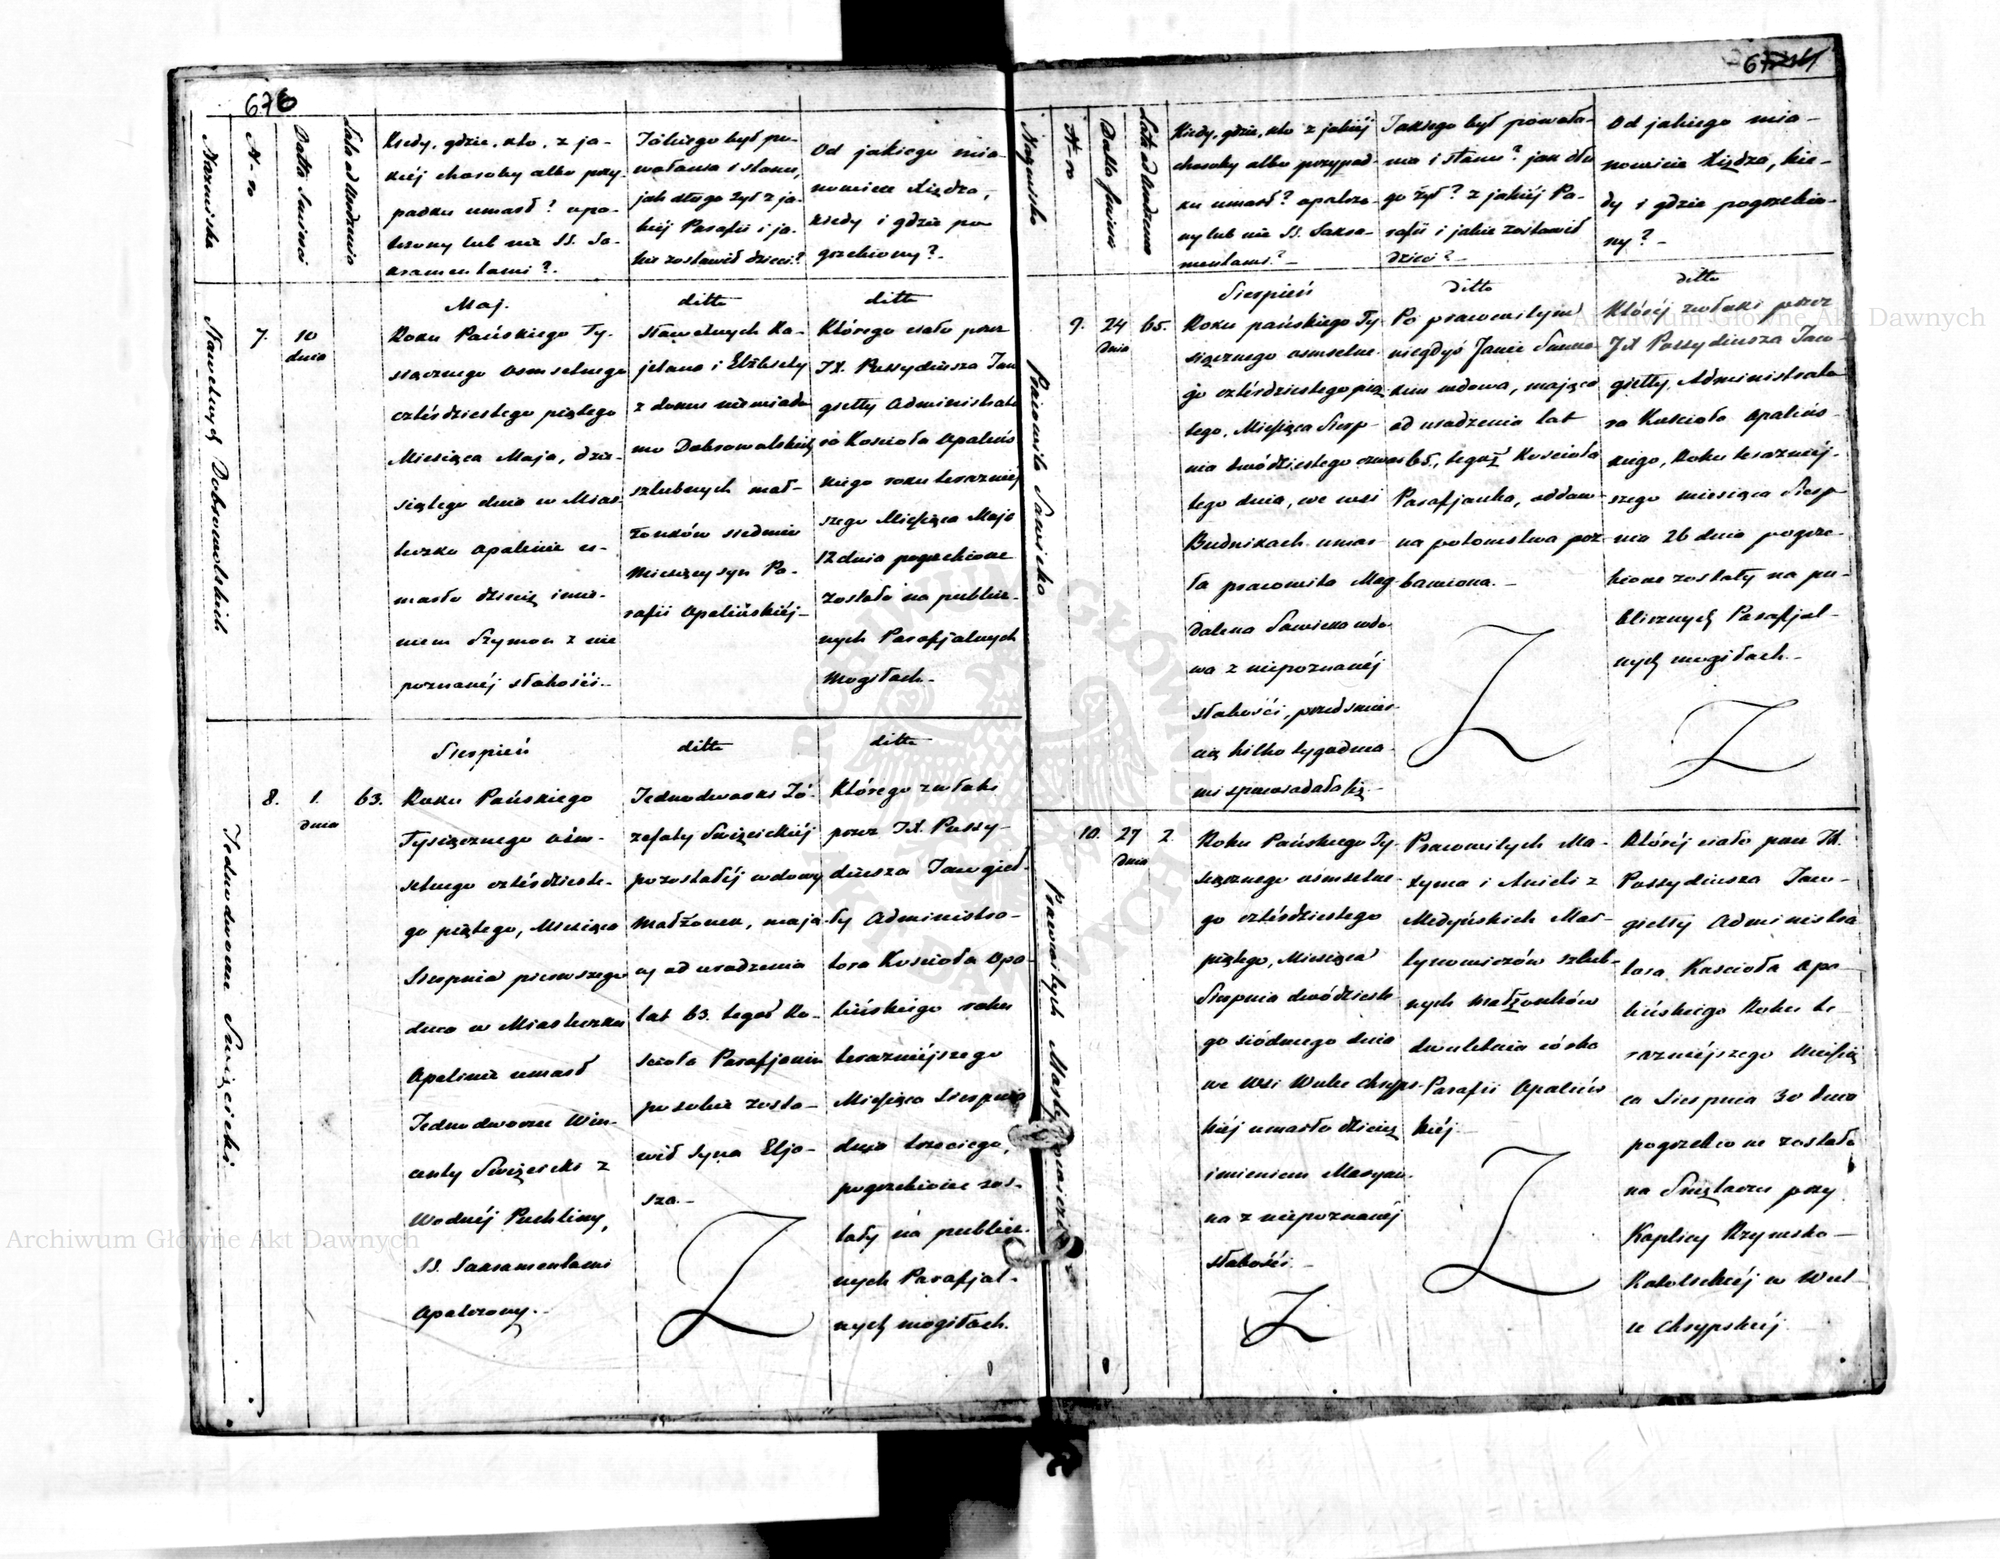 676
Nazwiska
N-ro
Datta Śmierci
Lata od Urodzenia
Kiedy, gdzie, kto, z ja-
kiéj choroby albo przy-
padku umarł? opa-
trzony lub nie SS. Sa-
kramentami?
Jakiego był po-
wołania i stanu,
jak długo żył z ja-
kiéj Parafii i ja-
kie zostawił dzieci?
Od jakiego mia-
nowicie Xiędza,
kiedy i gdzie po
grzebiony?
Sławetnych Dobrowolskich
7.
10
dnia
Maj.
Roku Pańskiego Ty-
siącznego osmsetnego
czterdziestego piątego
Miesiąca Maja, dzie-
siątego dnia w Mias
teczku Opalinie u-
marło dziecię imie-
niem Szymon z nie
poznanéj słabości.
ditto
Sławetnych Ka-
jetana i Elżbiety
z domu niewiado
mo Dobrowolskich
szlubnych mał-
żonków siedmio
Miesięczny syn Pa-
rafii Opalińskiéj
ditto
Którego ciało przez
JX. Possydiusza Jaw
giełły Administrato
ra Kościoła Opalińs
kiego roku teraźniej
szego Miesiąca Maja
12 dnia pogrzebione
zostało na publicz-
nych Parafjalnych
Mogiłach.
Jednodworzec Święcicki
8.
1.
dnia
63.
Sierpień
Roku Pańskiego
Tysiącznego ośm-
setnego czterdzieste-
go piątego, Miesiąca
Sierpnia pierwszego
dnia w Miasteczku
Opalinie umarł
Jednodworzec Win-
centy Święcicki z
Wodnéj Puchliny,
SS. Sakramentami
Opatrzony.
ditto
Jednodworki Jó-
zefaty Święcickiéj
pozostałéj wdowy
małżonek, mają
cy od urodzenia
lat 63. tegoż Ko-
ścioła Parafjanin
po sobie zosta-
wił syna Elja-
sza.
ditto
Którego zwłoki
przez JX. Possy-
diusza Jawgieł-
ły Administra-
tora Kościoła Opa-
lińskiego roku
teraźniéjszego
Miesiąca Sierpnia
dnia trzeciego,
pogrzebione zos-
tały na publicz-
nych Parafjal-
nych mogiłach.
Nazwisko
N-ro
Datta śmierci
Lata od Urodzenia
Kiedy, gdzie, kto z jakiéj
choroby albo przypad-
ku umarł? opatrzo-
ny lub nie SS. Sakra-
mentami?
Jakiego był powoła-
nia i stanu? jak dłu
go żył? z jakiéj Pa-
rafii i jakie zostawił
dzieci?
Od jakiego mia-
nowicie Xiędza, kie-
dy i gdzie pogrzebio-
ny?
Pracowita Sawicka
9.
24
dnia
65.
Sierpień
Roku pańskiego Ty-
siącznego osmsetne-
go czterdziestego pią
tego, Miesiąca Sierp-
nia dwódziestego czwar
tego dnia, we wsi
Budnikach umar-
ła pracowita Mag
dalena Sawicka wdo-
wa z niepoznanéj
słabości, przed śmier-
cią kilko tygodnia-
mi spowiadała się.
ditto
Po pracowitym
niegdyś Janie
wdowa, mająca
od urodzenia lat
65., tegoż Kościoła
Parafjanka,
na potomstwa poz
bawiona.
ditto
Któréj zwłoki przez
JX Possydiusza Jaw-
giełły, Administrato
ra Kościoła Opalińs-
kiego, Roku teraźniéj-
szego miesiąca Sierp
nia 26 dnia pogrze-
bione zostały na pu-
blicznych Parafjal-
nych mogiłach.
Pracowitych Martynowiczów
10.
27
dnia
2.
Roku Pańskiego Ty-
siącznego ośmsetne-
go czterdziestego
piątego, Miesiąca
Sierpnia dwódzieste
go siódmego dnia
we Wsi Wulce Chryps-
kiéj umarło dziecię
imieniem Maryan-
na z niepoznanéj
słabości.
Pracowitych Ma-
xyma i Anieli z
Medyńskich Mar-
tynowiczów szlub-
nych małżonków
dwuletnia córka
Parafii Opalińs
kiéj
Któréj ciało przez JX.
Possydiusza Jaw-
giełły Administra
tora Kościoła Opa-
lińskiego Roku te-
raźniéjszego Miesią
ca Sierpnia 30 dnia
pogrzebione zostało
na Smętarzu przy
Kaplicy Rzymsko-
Katolickiéj w Wul-
ce Chrypskiéj
Archiwum Główne Akt Dawnych
Archiwum Główne Akt Dawnych